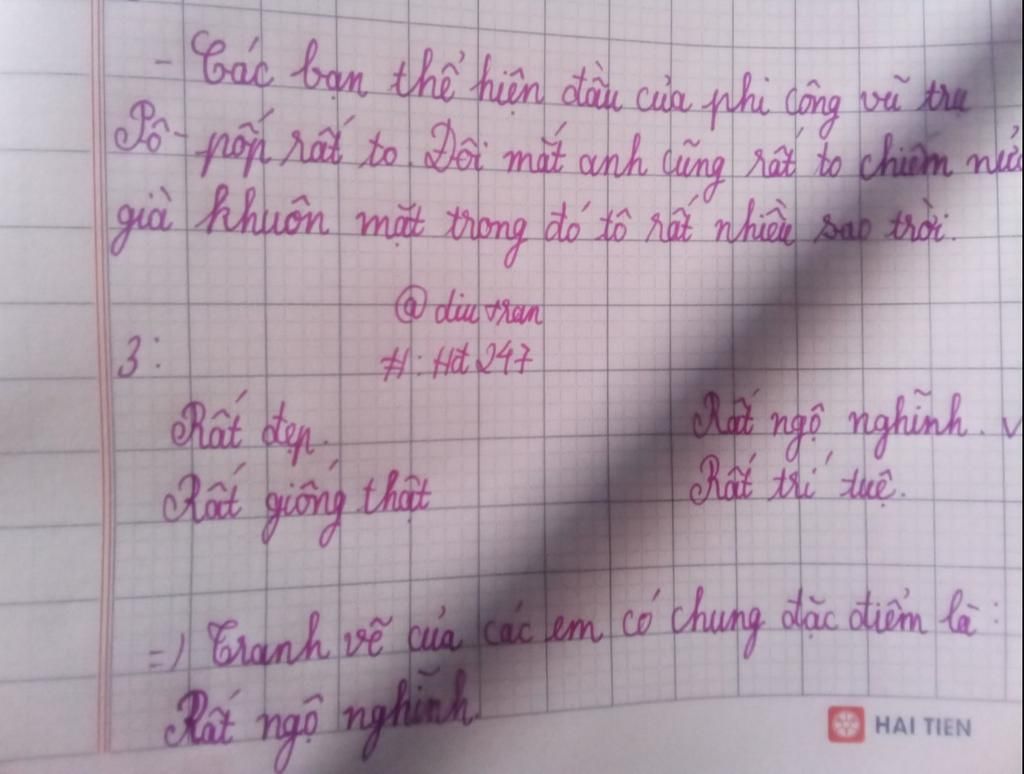 - Các bạn thể hiện đầu của phi công vũ trụ
Pô-pốp rất to. Đôi mắt anh cũng rất to chiếm nửa
già khuôn mặt trong đó tô rất nhiều sao trời.
@ diu tran
#: Hd 247
3:
Rất đẹp.
Rất ngộ nghĩnh. v
Rất giống thật
Rất trí tuệ.
=) Tranh vẽ của các em có chung đặc điểm là:
Rất ngộ nghĩnh
HAI TIEN